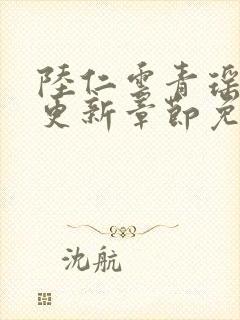 陸仁雲青瑶
更新章節免
沈航